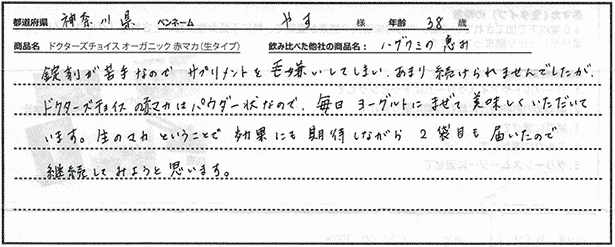 都道府県 神奈川県 ペンネーム やす 様 年齢 38 歳
商品名 ドクターズチョイス オーガニック 赤マカ（生タイプ） 飲み比べた他社の商品名： ハグクミの恵み
錠剤が苦手なので サプリメントを毛嫌いしてしまい、あまり続けられませんでしたが、
ドクターズチョイスの赤マカはパウダー状なので、毎日ヨーグルトにまぜて美味しくいただいて
います。生のマカということで 効果にも期待しながら 2袋目も届いたので
継続してみようと思います。